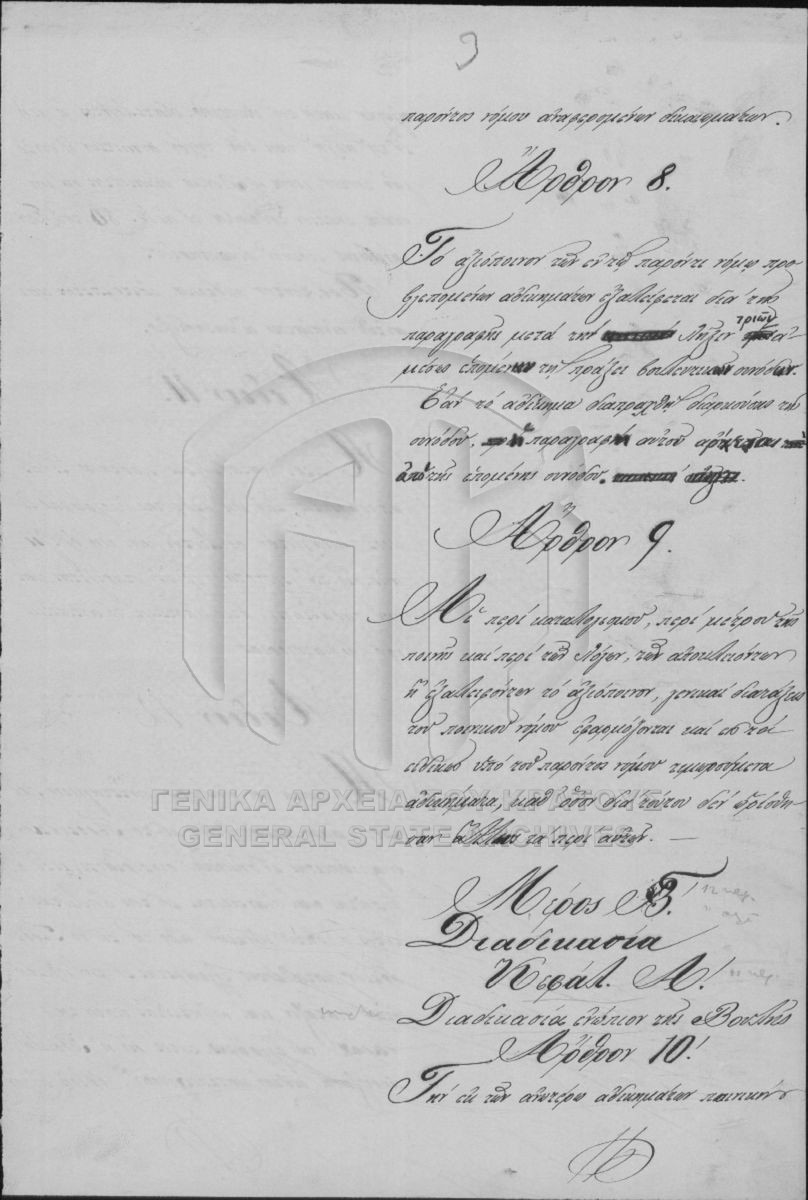 9
παρόντος νόμου αναφερομένων δικαιωμάτων.
Ἄρθρον 8.
Τό αξιόποινον τῶν εν τῷ παρόντι νόμῳ προ
βλεπομένων αδικημάτων εξαλείφεται διά της
παραγραφῆς μετά την λῆξιν τριῶν α
μέσως επομένων τῇ πράξει βουλευτικῶν συνόδων.
Εάν τό αδίκημα διαπραχθῇ διαρκούσης της
συνόδου, ἡ παραγραφή αυτού άρχεται
από της επομένης συνόδου.
Ἄρθρον 9.
Αἱ περί καταλογισμού, περί μέτρου της
ποινης καί περί τῶν λόγων, τῶν αποκλειόντων
ἢ εξαλειφόντων τό αξιόποινον, γενικαί διατάξεις
του ποινικού νόμου εφαρμόζονται καί εις τά
ειδικώς υπό του παρόντος νόμου τιμωρούμενα
αδικήματα, καθ' ὅσον δια τούτου δέν ωρίσθη
σαν άλλως τα περί αυτῶν. —
Μέρος Β.'
Διαδικασία
Κεφάλ. Α.'
Διαδικασία ενώπιον της Βουλής
Άρθρον 10.'
Τήν εκ τῶν ανωτέρω αδικημάτων ποινικήν
ΓΕΝΙΚΑ ΑΡΧΕΙΑ ΤΟΥ ΚΡΑΤΟΥΣ
GENERAL STATE ARCHIVES